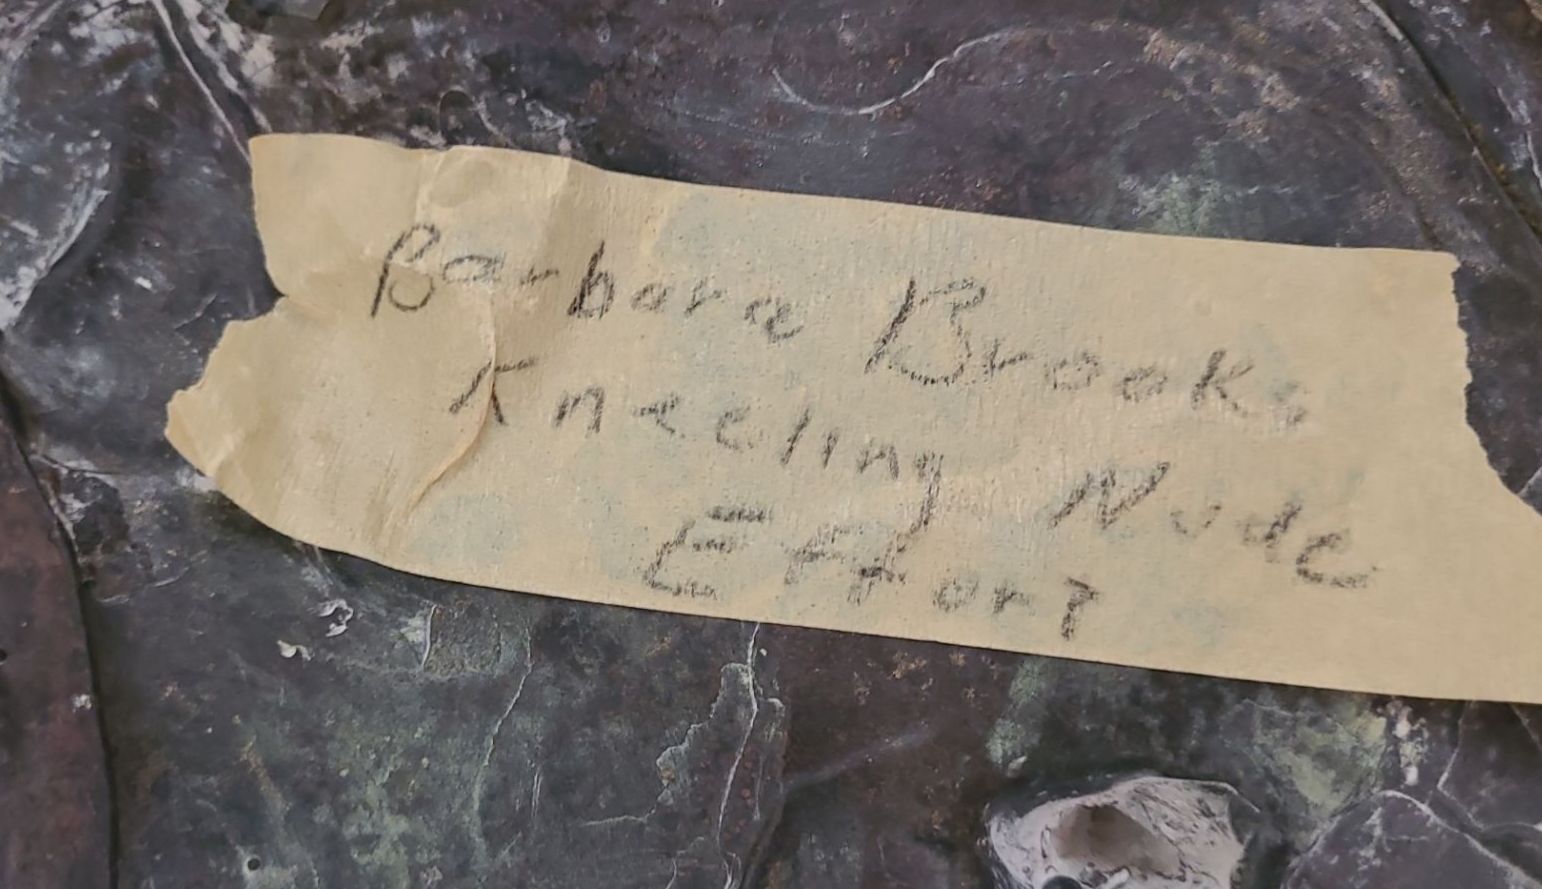 Barbara Brooks
Kneeling Nude
Effort